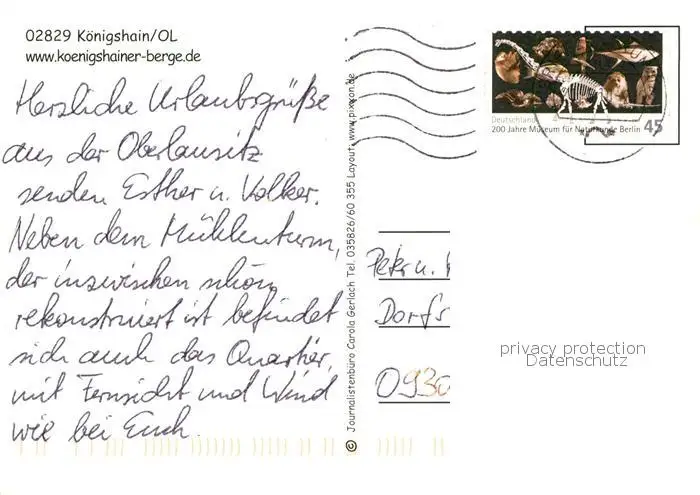 02829 Königshain/OL
www.koenigshainer-berge.de
Herzliche Urlaubsgrüße
aus der Oberlausitz
senden Esther u. Volker.
Neben dem Mühlenturm,
der inzwischen schon
rekonstruiert ist befindet
sich auch das Quartier,
mit Fernsicht und Wind
wie bei Euch.
© Journalistenbüro Carola Gerlach Tel. 035826/60 355 Layout: www.pixxon.de
Deutschland
200 Jahre Museum für Naturkunde Berlin 45
Peter u.
Dorfs
0930
privacy protection
Datenschutz